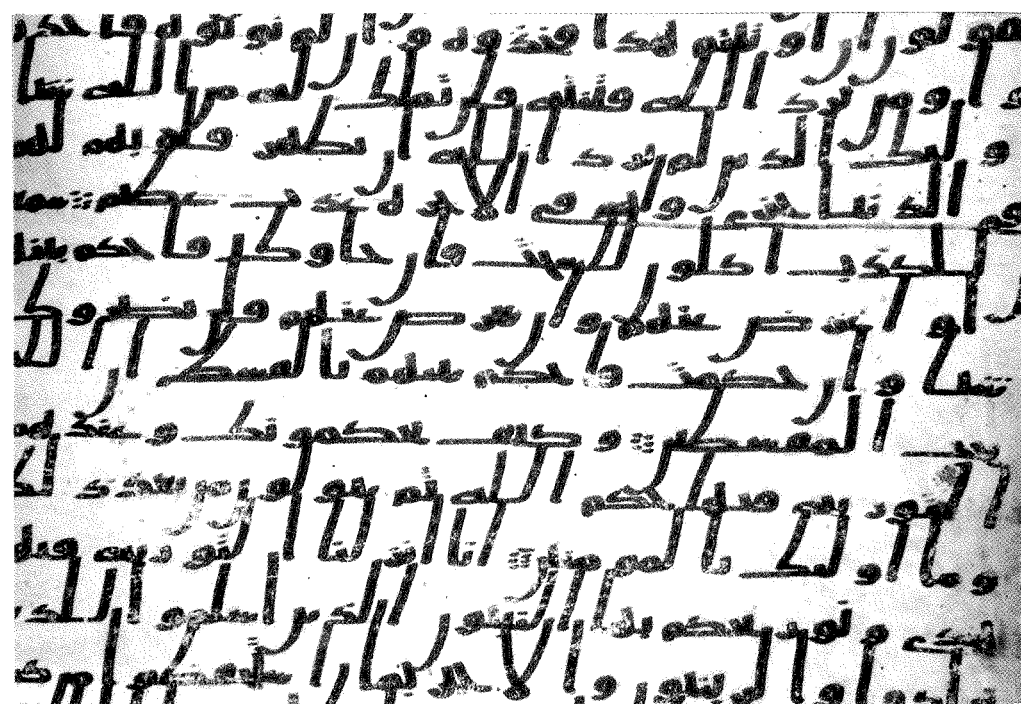 يقولون ان اوتيتم هذا فخذوه وان لم توتوه فاحذر
وا ومن يرد الله فتنته فلن تملك له من الله شيا
اولئك الذين لم يرد الله ان يطهر قلوبهم لهم
في الدنيا خزي ولهم في الاخرة عذاب عظيم سمعو
ن للكذب اكلون للسحت فان جاوك فاحكم بينهم
او اعرض عنهم وان تعرض عنهم فلن يضروك
شيا وان حكمت فاحكم بينهم بالقسط ان الله
يحب المقسطين وكيف يحكمونك وعندهم
التورية فيها حكم الله ثم يتولون من بعد ذلك
وما اولئك بالمومنين انا انزلنا التورية فيها
هدى ونور يحكم بها النبيون الذين اسلموا للذين
هادوا والربنيون والاحبار بما استحفظوا من